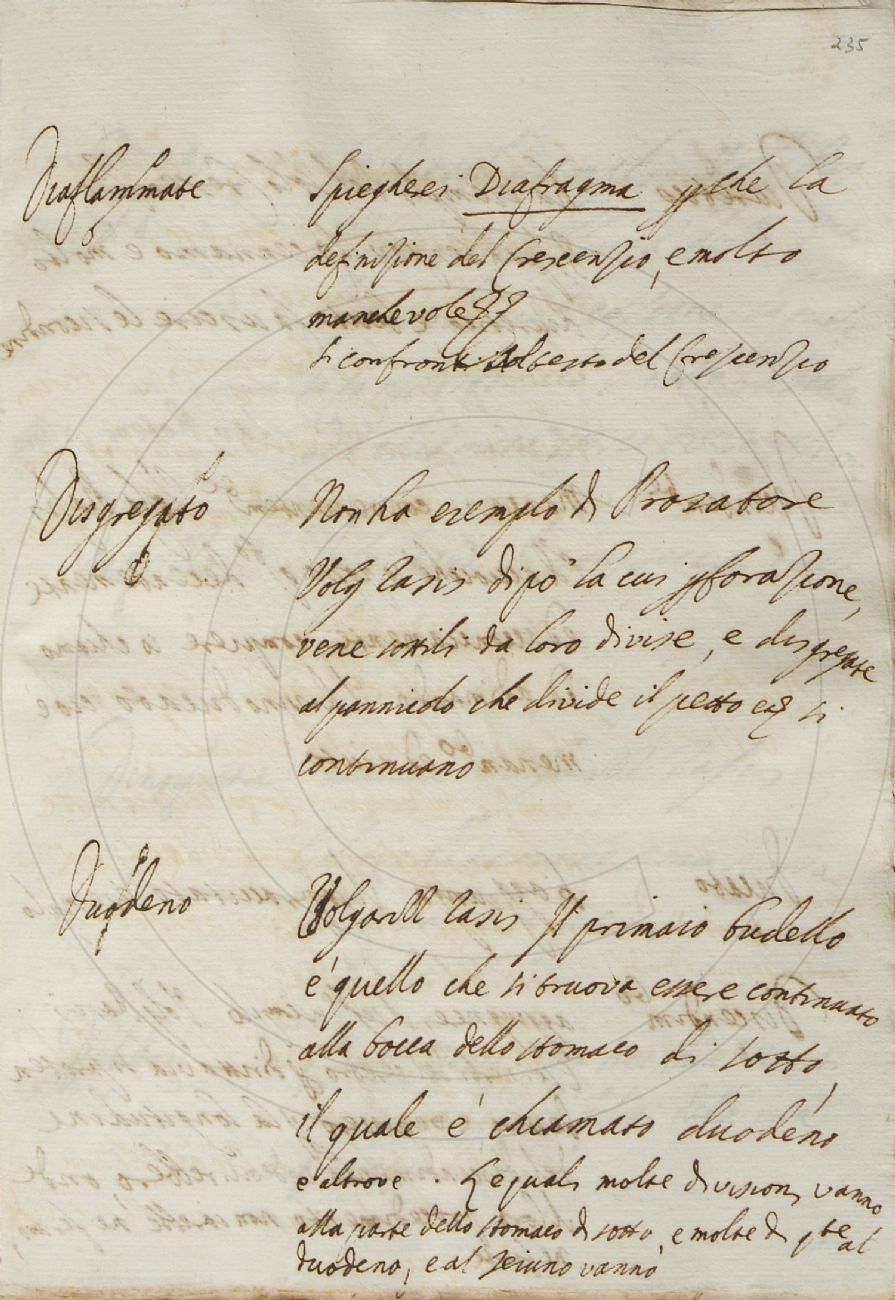 235
Diaflammate
Spieghesi Diafragma pche la
definizione del Crescenzio, e molto
manchevole
si confronti col testo del Crescenzio
Disgregato
Non ha esemplo di Prosatore
Volg Rasis dipo la cui pforazione,
vene sottili da loro divise, e disgregate
al pannicolo che divide il petto si
continuano
Duodeno
Volgarizz Rasis Il primaio budello
è quello che si truova essere continuato
alla bocca dello stomaco di sotto,
il quale è chiamato duodéno
e altrove. Le quali molte divisioni vanno
alla parte dello stomaco di sotto, e molte di al
duodeno, e al Jeiuno vanno